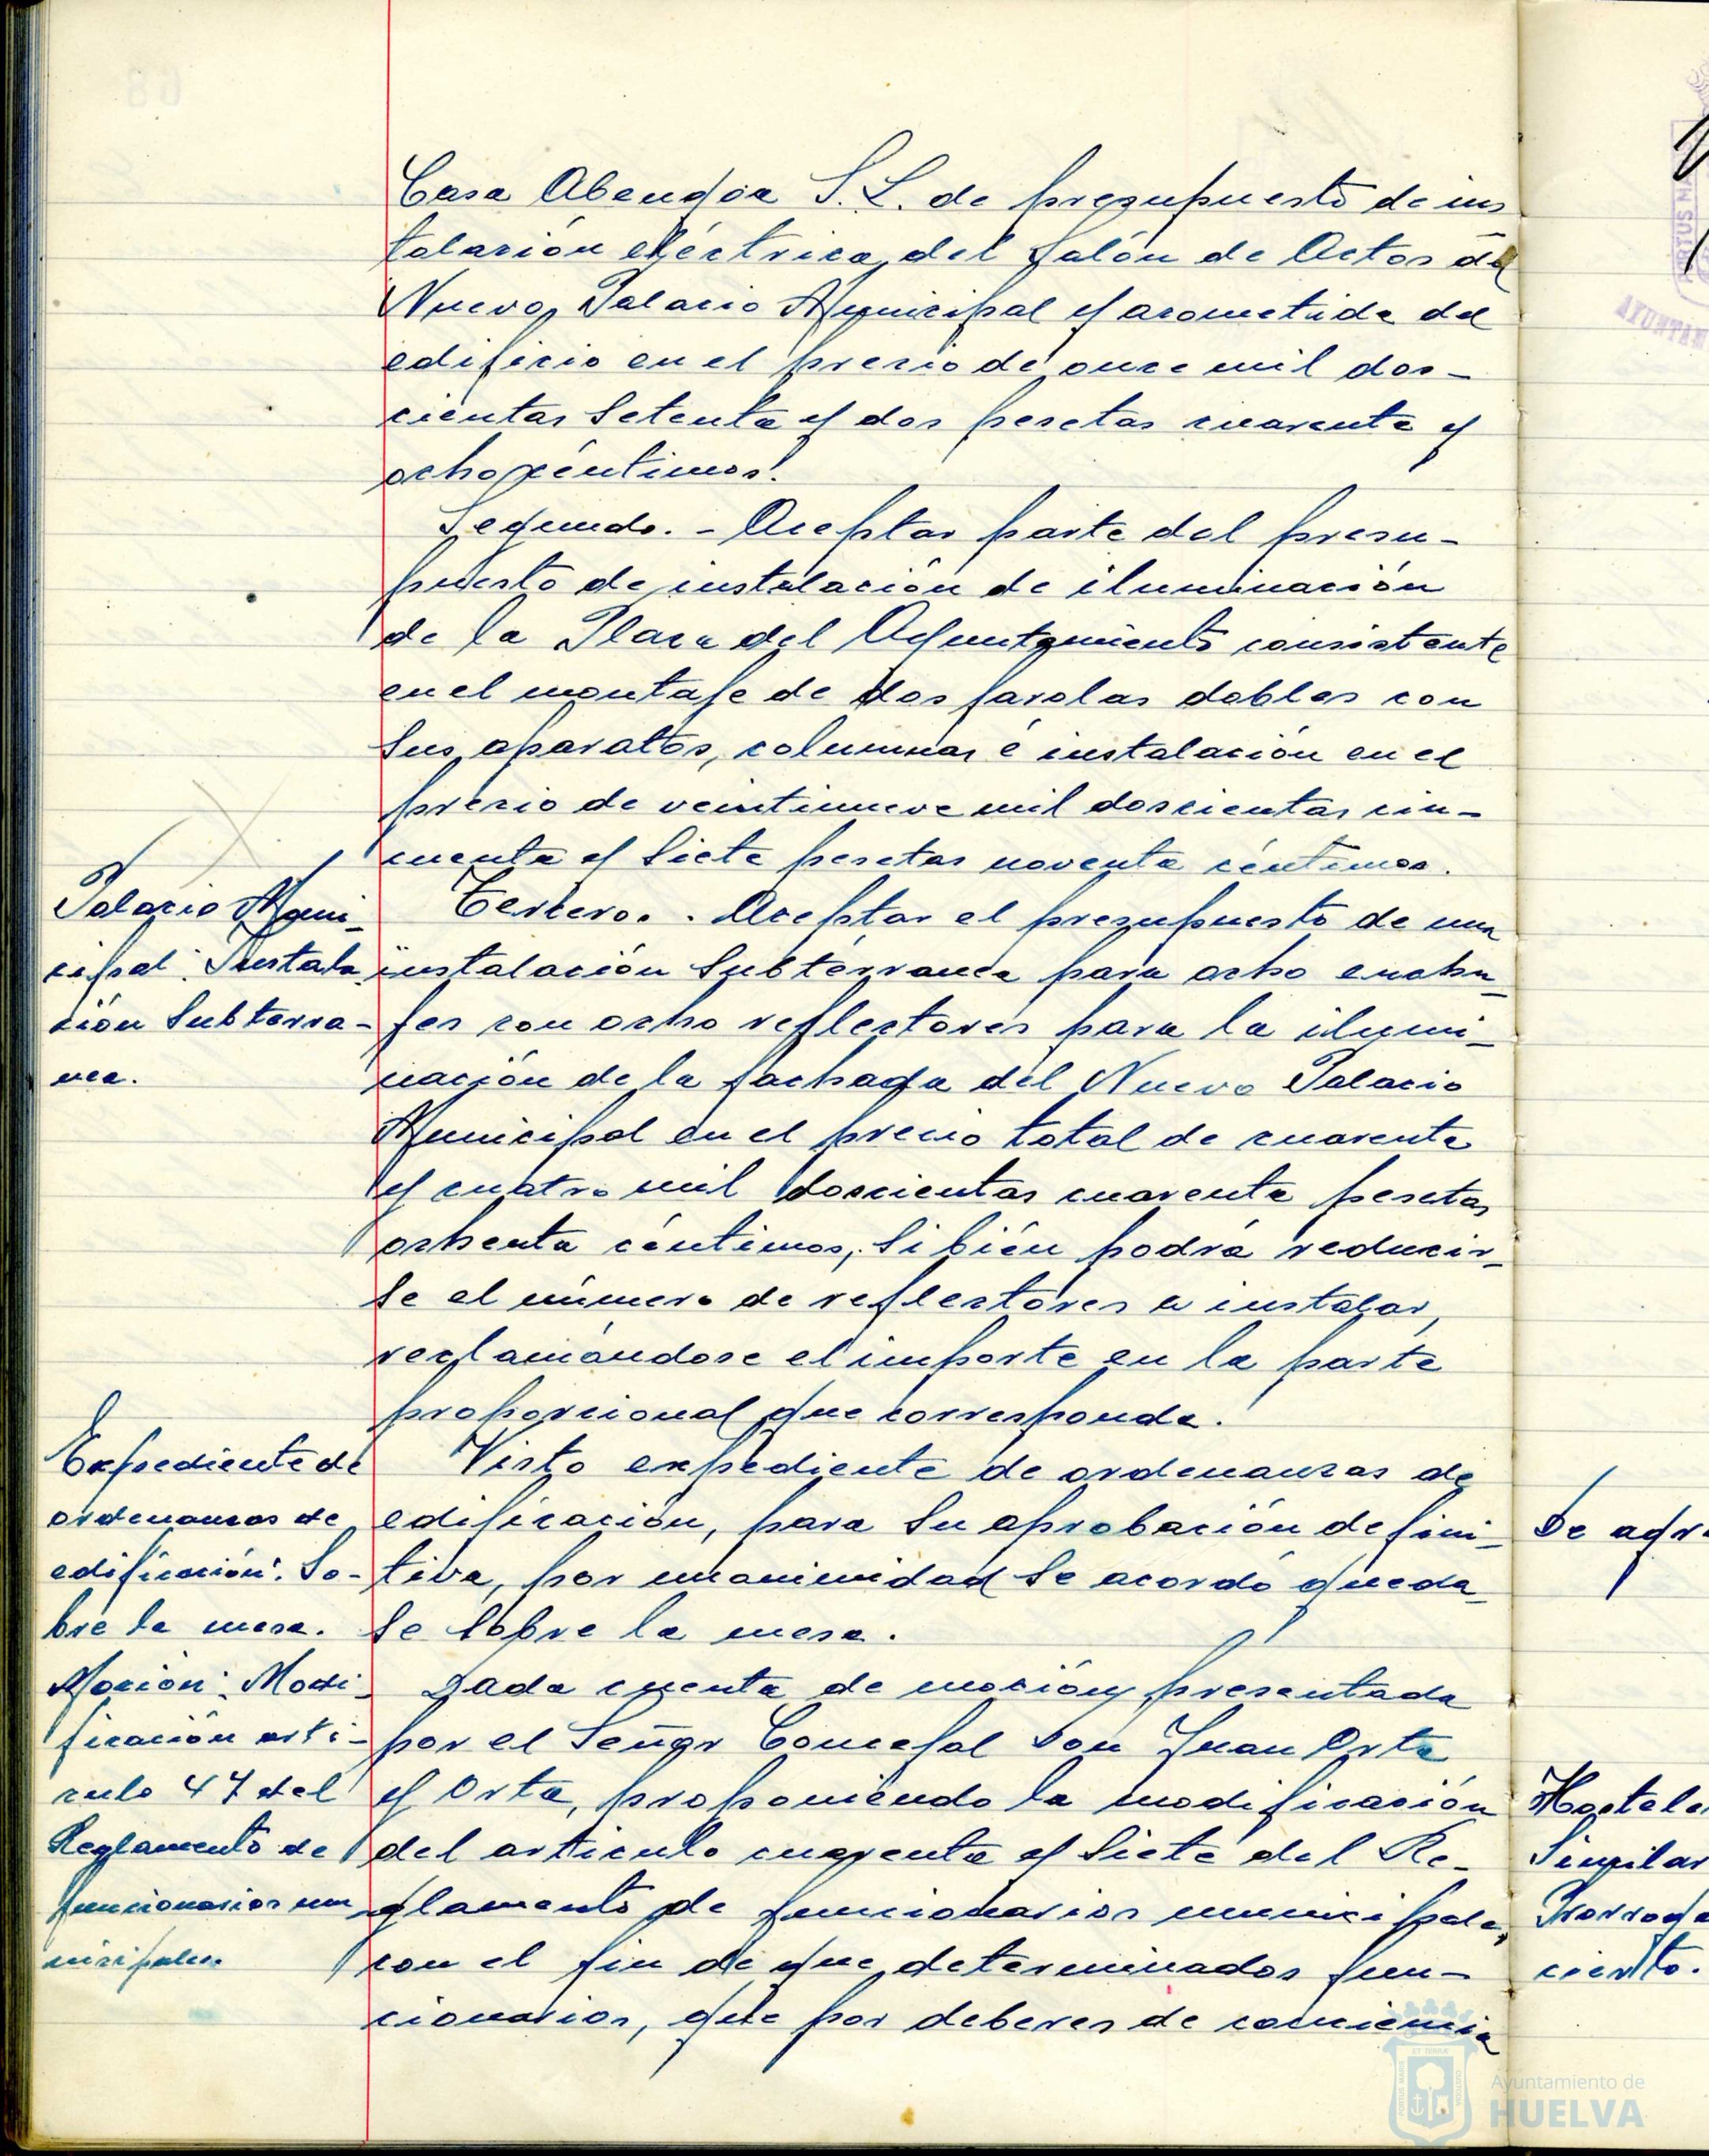 Casa Abengoa S.L. de presupuesto de ins
talación eléctrica, del Salón de Actos del
Nuevo Palacio Municipal y acometida del
edificio en el precio de once mil dos-
cientas setenta y dos pesetas cuarenta y
ocho céntimos.
Segundo.- Aceptar parte del presu-
puesto de instalación de iluminación
de la Plaza del Ayuntamiento consistente
en el montaje de dos farolas dobles con
sus aparatos, columnas é instalación en el
precio de veintinueve mil doscientas cin-
cuenta y siete pesetas noventa céntimos.
Palacio Muni-
cipal: Instala
ción Subterra-
nea.
Tercero.- Aceptar el presupuesto de una
instalación subterranea para ocho enchu-
fes con ocho reflectores para la ilumi-
nación de la fachada del Nuevo Palacio
Municipal en el precio total de cuarenta
y cuatro mil doscientas cuarenta pesetas
ochenta céntimos, si bién podrá reducir-
se el número de reflectores a instalar,
reclamándose el importe en la parte
proporcional que corresponda.
Expediente de
ordenanzas de
edificación: So-
bre la mesa.
Visto expediente de ordenanzas de
edificación, para su aprobación defini-
tiva, por unanimidad se acordó queda-
se sobre la mesa.
Moción: Modi-
ficación artí-
culo 47 del
Reglamento de
funcionarios mu
nicipales.
Dada cuenta de moción presentada
por el Señor Concejal Don Juan Orta
y Orta, proponiendo la modificación
del artículo cuarenta y siete del Re-
glamento de funcionarios municipales,
con el fin de que determinados fun-
cionarios, que por deberes de conciencia
Se agr
Hostele
Singilar
Prorroga
ciento.
AYUNTAM
Ayuntamiento de
HUELVA